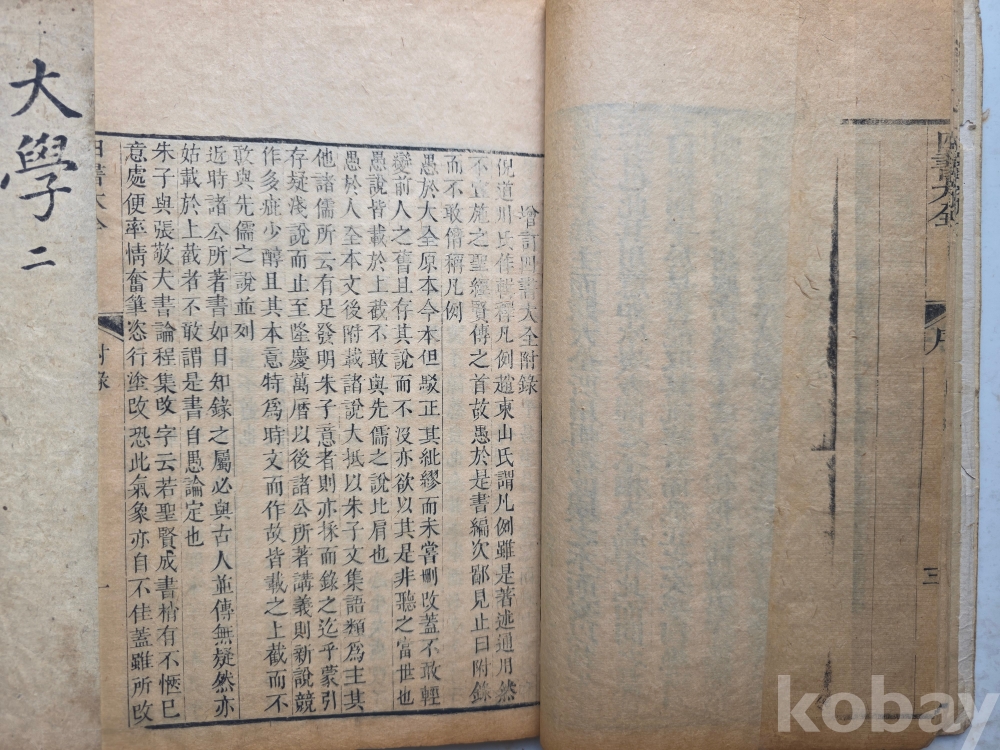 四書大全
序
三
增訂四書大全附錄
倪道川氏作輯釋凡例趙東山氏謂凡例雖是著述通用然
不宜施之聖經賢傳之首故愚於是書編次鄙見止曰附錄
而不敢僭稱凡例
愚於大全原本今本但駁正其紕繆而未嘗刪改蓋不敢輕
變前人之舊且存其說而不沒亦欲以其是非聽之當世也
愚說皆載於上截不敢與先儒之說比肩也
愚於大全本文後附載諸說大抵以朱子文集語類爲主其
他諸儒所云有足發明朱子意者則亦採而錄之迄乎蒙引
存疑淺說而止至隆慶萬曆以後諸公所著講義則新說競
作多疵少醇且其本意特爲時文而作故皆載之上截而不
敢與先儒之說並列
近時諸公所著書如日知錄之屬必與古人並傳無疑然亦
姑載於上截者不敢謂是書自愚論定也
朱子與張敬夫書論程集改字云若聖賢成書稍有不愜已
意處便率情奮筆恣行塗改恐此氣象亦自不佳蓋雖所改
四書大全
附錄
一
大學 二
kobay